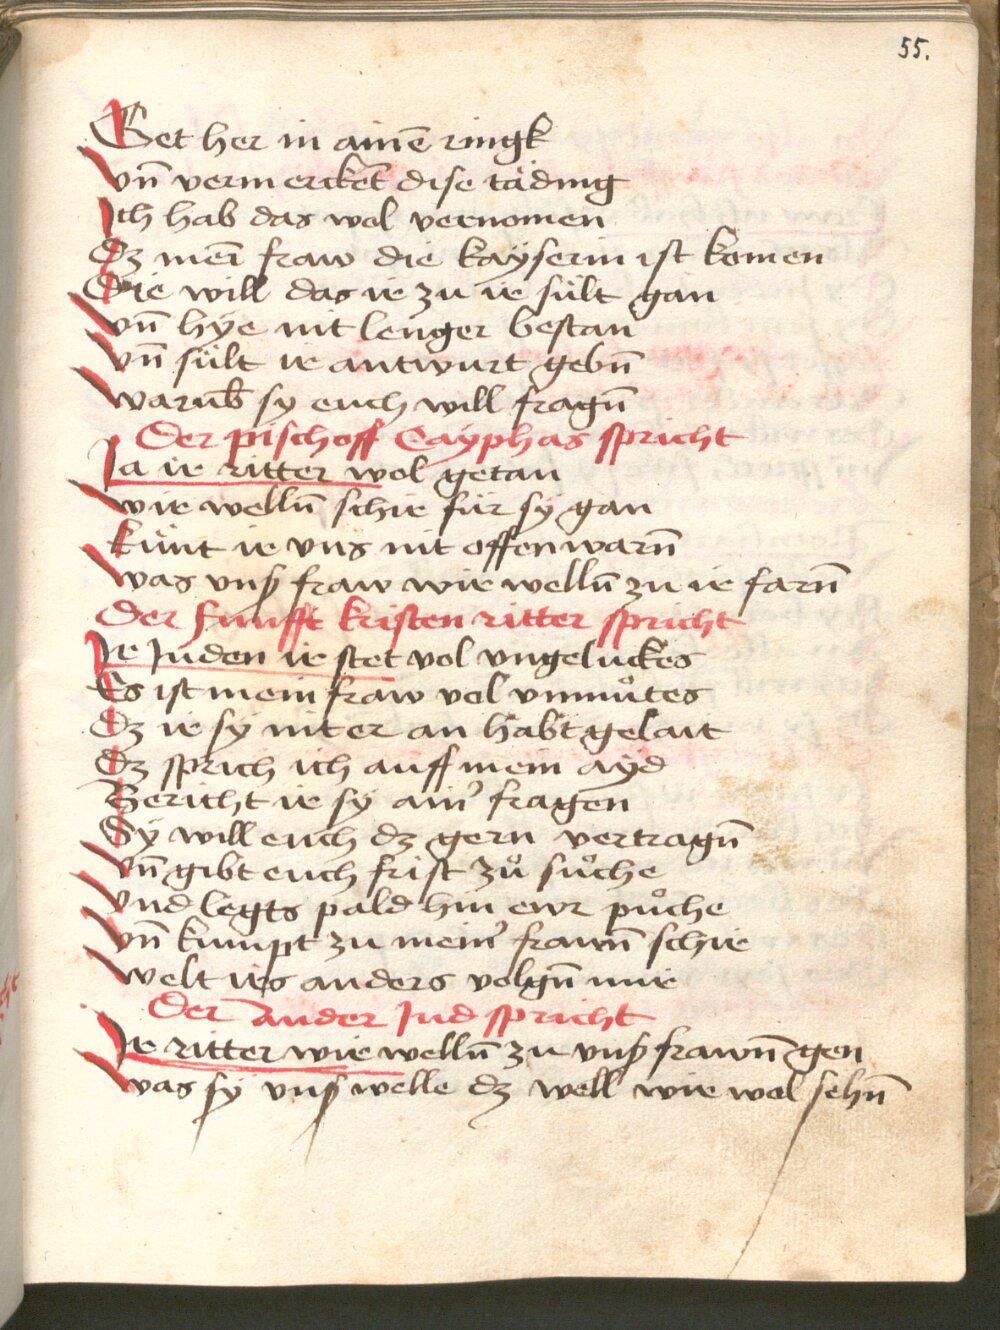 55.
Get her in ainē ringk
vn̄ vermerckēt dise täding
Ich hab das wol vernomen
dz meī fraw die kaÿserin ist komen
Die will das ir zu ir sült gan
vn̄ hÿe nit lenger bestan
vn̄ sült ir antwurt gebn̄
warūb sy euch will fragn̄
Der pischoff Caÿphas spricht
Ja ir ritter wol getan
wir welln̄ schir für sÿ gan
künt ir vns nit offenwarn̄
was vnß fraw wir welln̄ zu ir farn̄
Der funfft kristen ritter spricht
Ir Juden ir stet vol vngeluckes
Es ist mein fraw vol vnmůtes
dz ir sÿ nit er an habt gelait
dz sprich ich auff mein aÿd
Bericht ir sÿ ainˀ fragen
Sÿ will euch dz gern vertragn̄
vn̄ gibt euch frist zů sůche
vnd legts pald hin ewr půche
vn̄ kumpt zu meinˀ frawn̄ schir
welt irs anders volgn̄ mir
Der ander Jud spricht
Ir ritter wir welln̄ zu vnß frawn̄ gen
was sÿ vnß welle dz well wir wol sehn̄